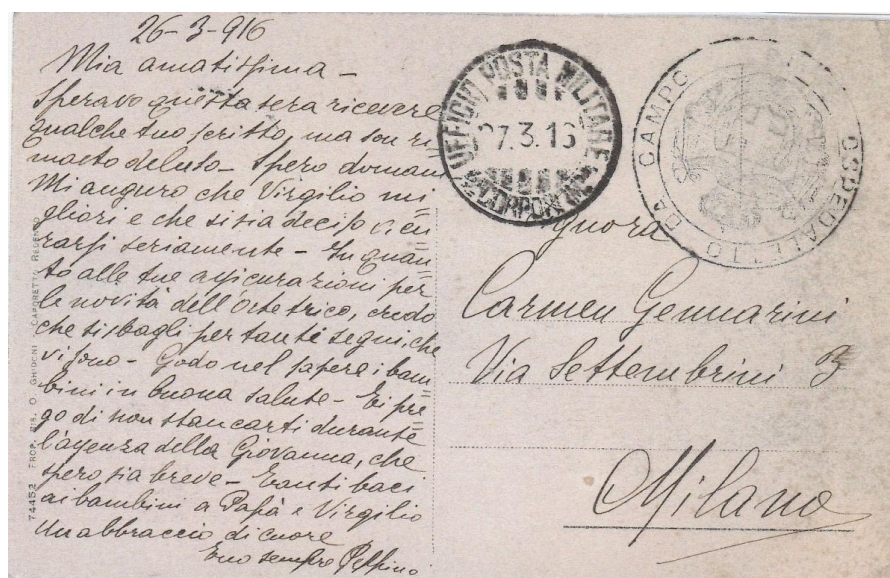 26-3-916
Mia amatissima -
Speravo questa sera ricevere
qualche tuo scritto, ma son ri=
masto deluso - Spero domani
Mi auguro che Virgilio mi=
gliori e che si sia deciso di cu=
rarsi seriamente - In quan=
to alle tue assicurazioni per
le novità dell'Ostetrico, credo
che ti sbagli per tanti segni, che
vi sono - Godo nel sapere i bam=
bini in buona salute - Ti pre=
go di non stancarti durante
l'assenza della Giovanna, che
spero sia breve - Tanti baci
ai bambini a Papà e Virgilio
Un abbraccio di cuore
Tuo sempre Peppino
74452 PROP. RIS. O. GHIDONI CAPORETTO REDENTO
UFFICIO POSTA MILITARE
27.3.16
CORPO
OSPEDALETTO DA CAMPO
gnora
Carmen Gennarini
Via Settembrini 3
Milano